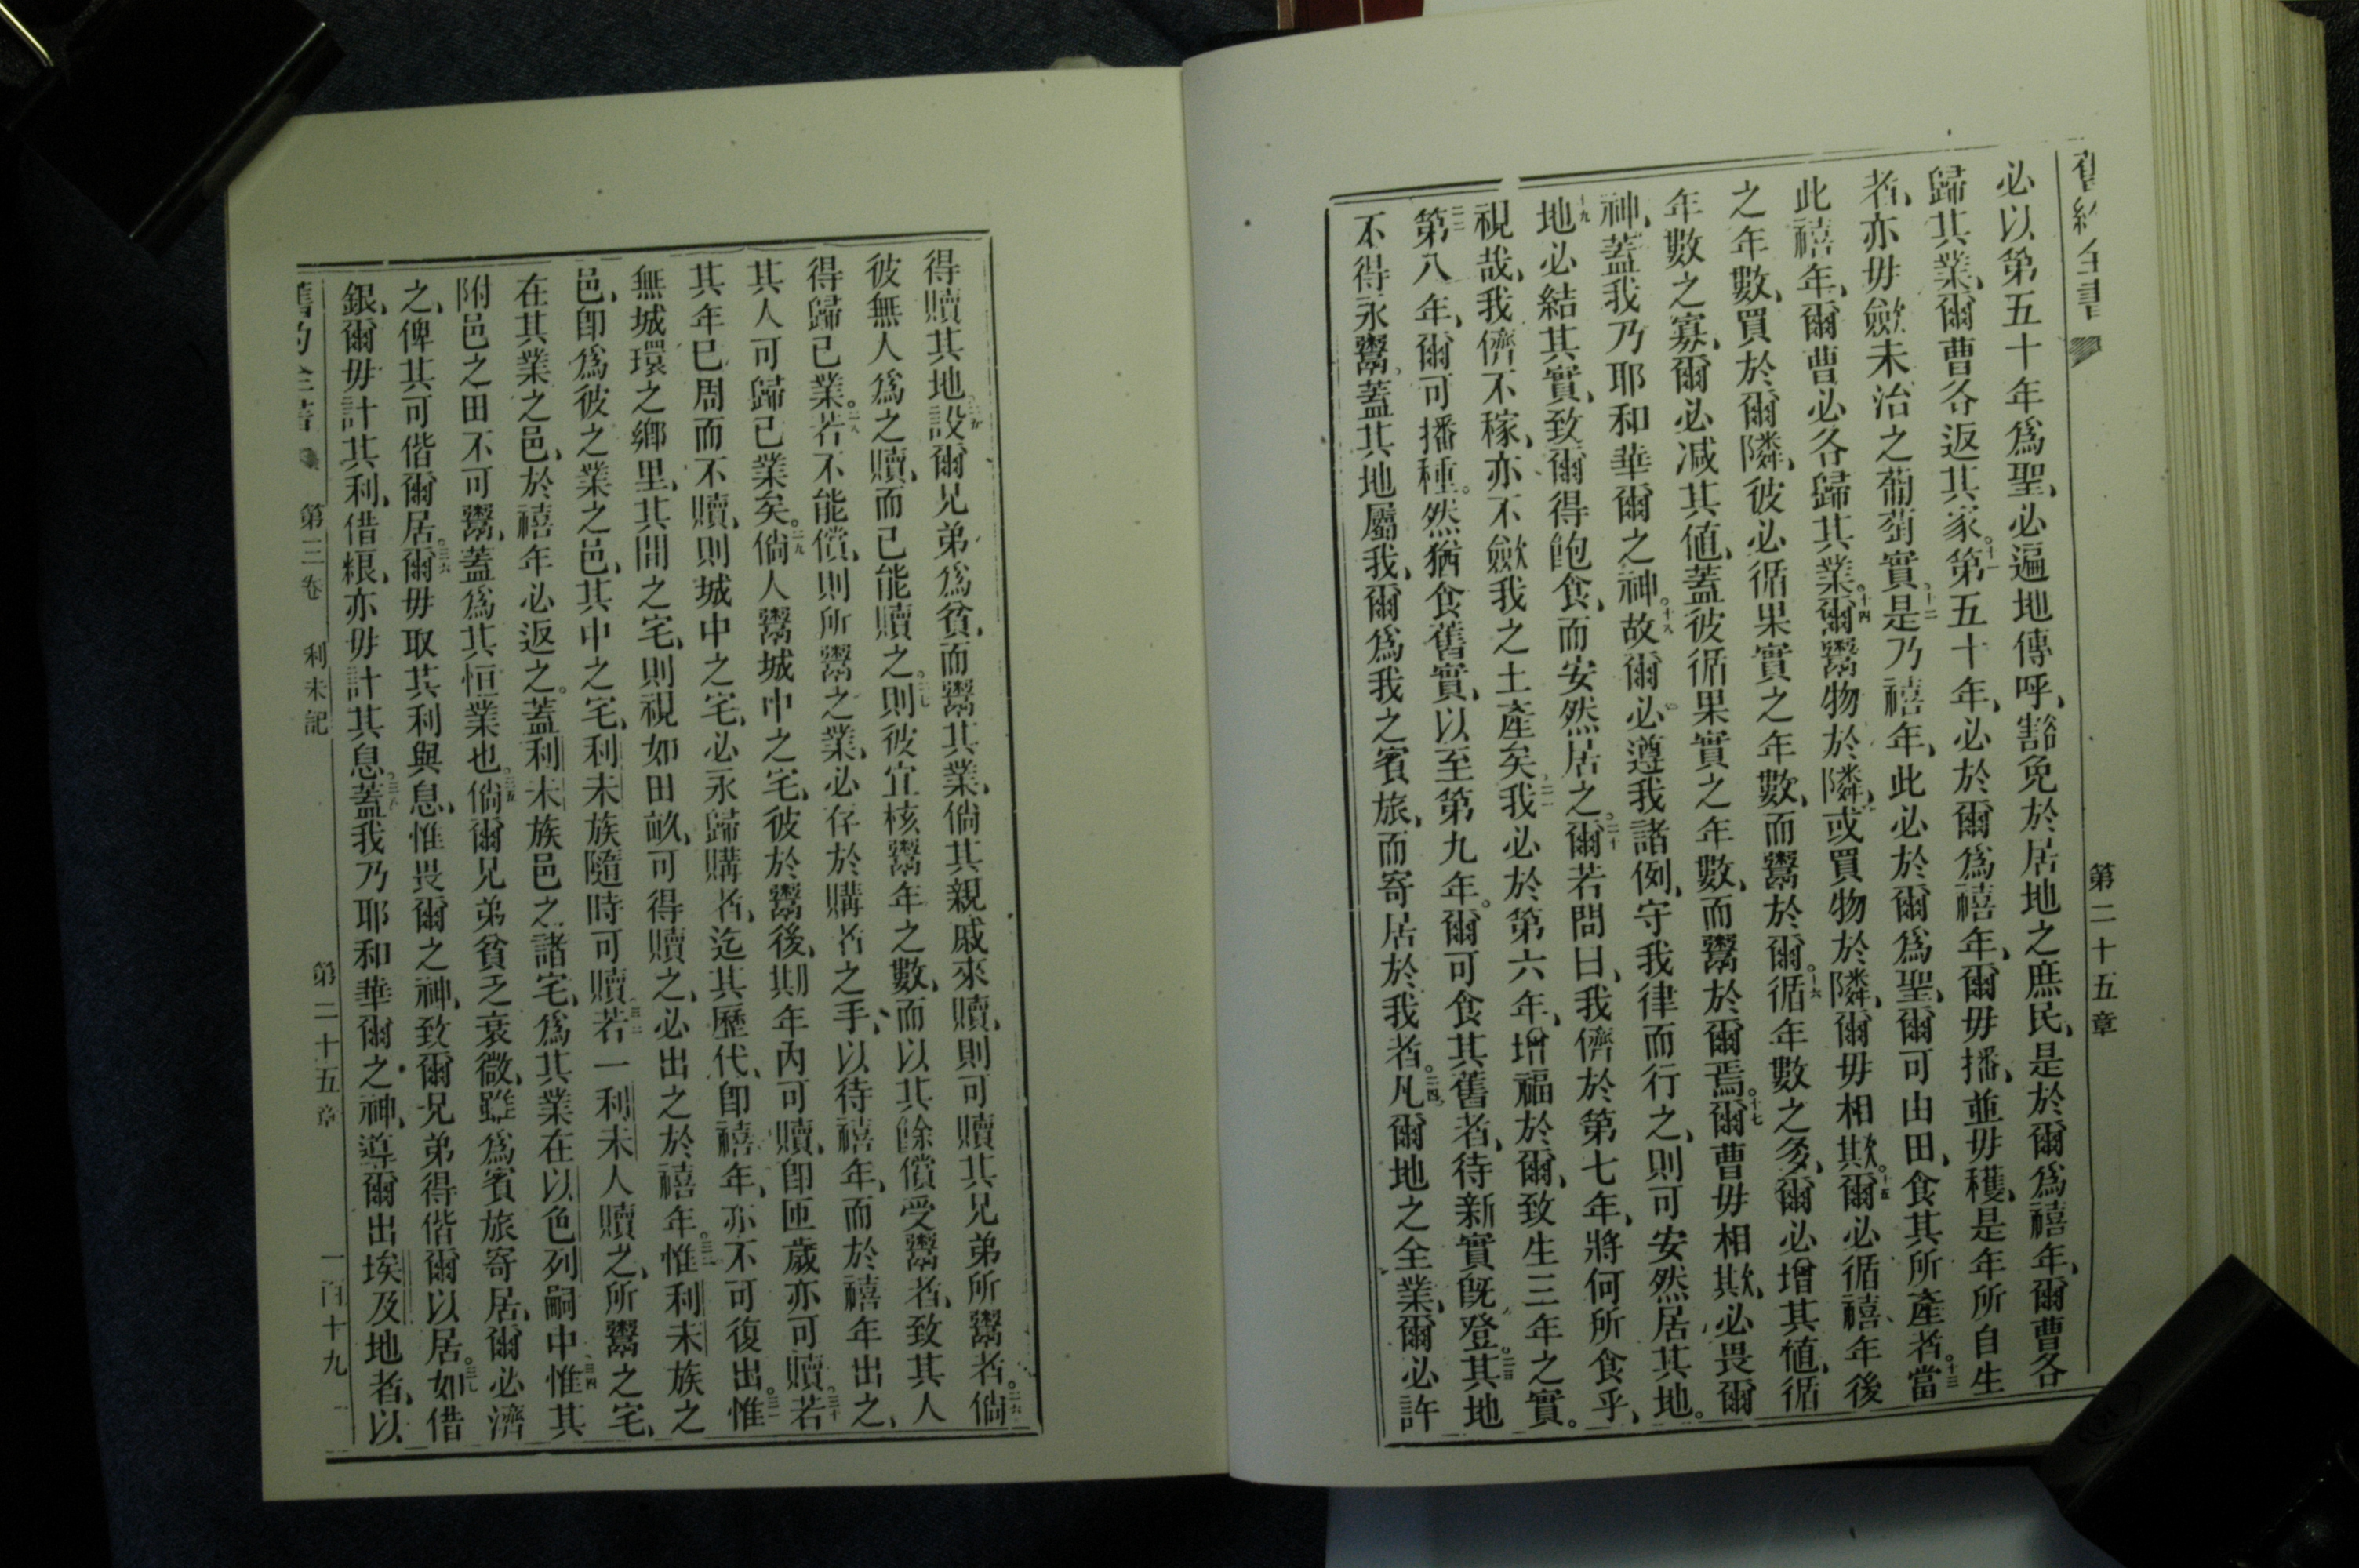 舊約全書 第二十五章
必以第五十年爲聖、必遍地傳呼、豁免於居地之庶民、是於爾爲禧年、爾曹各
歸其業、爾曹各返其家。十一第五十年、必於爾爲禧年、爾毋播、並毋穫、是年所自生
者、亦毋斂未治之葡萄實。十二是乃禧年、此必於爾爲聖、爾可由田、食其所產者。十三當
此禧年、爾曹必各歸其業。十四爾鬻物於隣、或買物於隣、爾毋相欺。十五爾必循禧年後
之年數、買於爾隣、彼必循果實之年數、而鬻於爾。十六循年數之多、爾必增其值、循
年數之寡、爾必減其値、蓋彼循果實之年數、而鬻於爾焉。十七爾曹毋相欺、必畏爾
神、蓋我乃耶和華爾之神。十八故爾必遵我諸例、守我律而行之、則可安然居其地。
十九地必結其實、致爾得飽食、而安然居之。二十爾若問曰、我儕於第七年、將何所食乎、
視哉、我儕不稼、亦不斂我之土產矣、二一我必於第六年、增福於爾、致生三年之實。
二二第八年、爾可播種。然猶食舊實、以至第九年。爾可食其舊者、待新實旣登。二三其地
不得永鬻。蓋其地屬我、爾爲我之賓旅、而寄居於我者。二四凡爾地之全業、爾必許
得贖其地、二五設爾兄弟爲貧、而鬻其業、倘其親戚來贖、則可贖其兄弟所鬻者。二六倘
彼無人爲之贖、而已能贖之。二七則彼宜核鬻年之數、而以其餘償受鬻者、致其人
得歸已業。二八若不能償、則所鬻之業、必存於購者之手、以待禧年、而於禧年出之、
其人可歸已業矣。二九倘人鬻城中之宅、彼於鬻後、期年內可贖、卽匝歲亦可贖。三十若
其年已周而不贖、則城中之宅、必永歸購者、迄其歷代、卽禧年、亦不可復出。三一惟
無城環之鄉里、其間之宅、則視如田畝、可得贖之、必出之於禧年。三二惟利未族之
邑、卽爲彼之業之邑、其中之宅、利未族隨時可贖。三三若一利未人贖之、所鬻之宅、
在其業之邑、於禧年必返之。蓋利未族邑之諸宅、爲其業在以色列嗣中。三四惟其
附邑之田不可鬻、蓋爲其恒業也。三五倘爾兄弟貧乏衰微、雖爲賓旅寄居、爾必濟
之、俾其可偕爾居。三六爾毋取其利與息、惟畏爾之神、致爾兄弟得偕爾以居。三七如借
銀、爾毋計其利、借粮、亦毋計其息。三八蓋我乃耶和華爾之神、導爾出埃及地者、以
舊約全書 第三卷 利未記 第二十五章 一百十九